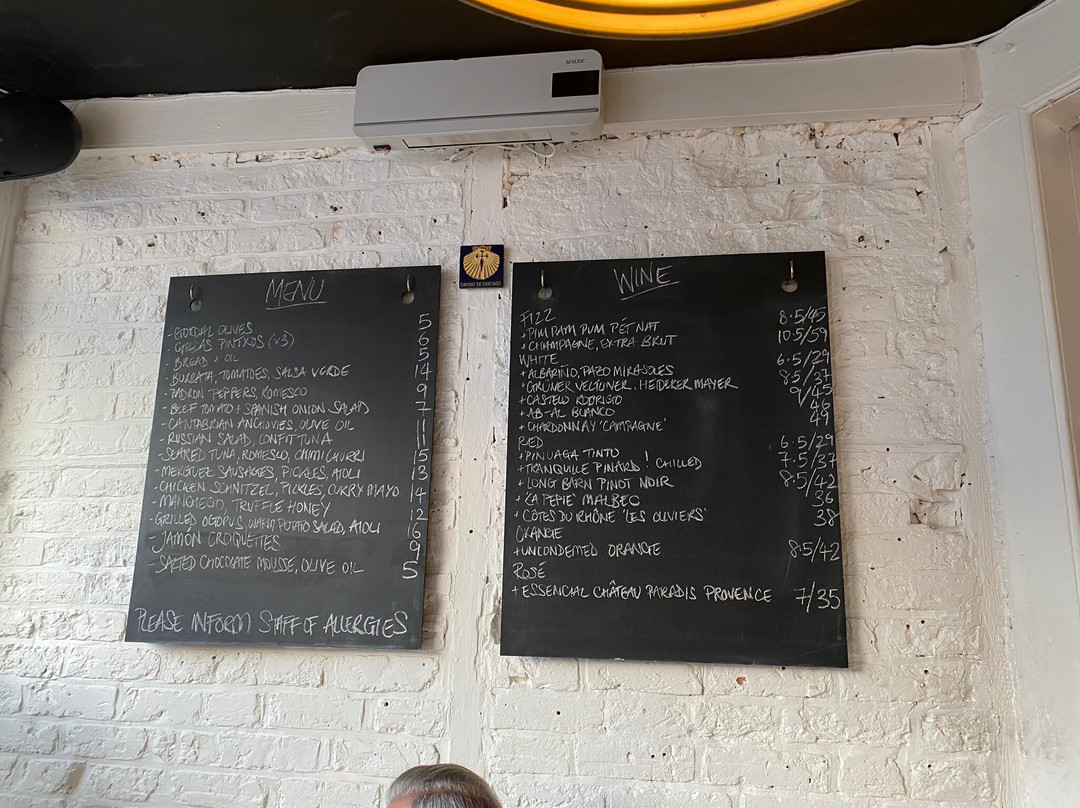 MENU
- GORDAL OLIVES 5
- GILDAS PINTXOS (x3) 6
- BREAD + OIL 5
- BURRATA, TOMATOES, SALSA VERDE 14
- PADRON PEPPERS, ROMESCO 9
- BEEF TOMATO + SPANISH ONION SALAD 7
- CANTABRIAN ANCHOVIES, OLIVE OIL 11
- RUSSIAN SALAD, CONFIT TUNA 11
- SEARED TUNA, ROMESCO, CHIMICHURRI 15
- MERGUEZ SAUSAGES, PICKLES, AIOLI 13
- CHICKEN SCHNITZEL, PICKLES, CURRY MAYO 14
- MANCHEGO, TRUFFLE HONEY 12
- GRILLED OCTOPUS, WARM POTATO SALAD, AIOLI 16
- JAMÓN CROQUETTES 9
- SALTED CHOCOLATE MOUSSE, OLIVE OIL 5
PLEASE INFORM STAFF OF ALLERGIES
CAMINO DE SANTIAGO
WINE
FIZZ
+ PIM PAM PUM PÉT NAT 8.5/45
+ CHAMPAGNE, EXTRA BRUT 10.5/59
WHITE
+ ALBARIÑO, PAZO 6.5/29
+ GRÜNER VELTLINER. HEIDERER MAYER 8.5/37
+ CASTELO RODRIGO 9/45
+ AB-AL BLANCO 46
+ CHARDONNAY 'CAMPAGNE' 49
RED
+ PINUAGA TINTO 6.5/29
+ TRANQUILLE PINARD ! CHILLED 7.5/37
+ LONG BARN PINOT NOIR 8.5/42
+ 'LA PETIE' MALBEC 36
+ CÔTES DU RHÔNE 'LES OLIVIERS' 38
ORANGE
+ UNCONDEMED ORANGE 8.5/42
ROSÉ
+ ESSENCIAL CHÂTEAU PARADIS PROVENCE 7/35